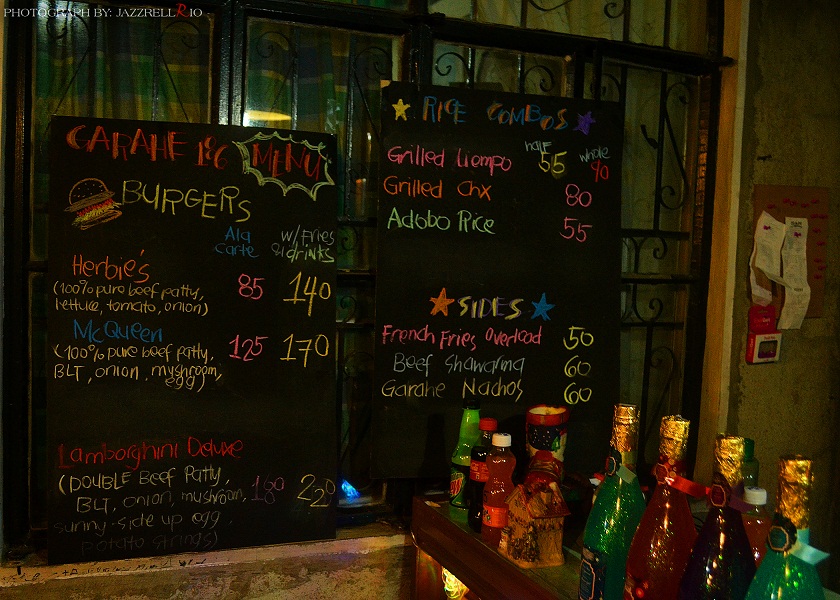 PHOTOGRAPH BY: JAZZRELLR10
GARAHE 186 MENU
BURGERS
Ala carte
w/ Fries & drinks
Herbie's 85 140
(100% pure beef patty,
lettuce, tomato, onion)
McQueen 125 170
(100% pure beef patty,
BLT, onion, myshroom,
egg)
Lamborghini Deluxe
(DOUBLE Beef Patty, 180 220
BLT, onion, mushroom,
sunny-side up egg,
potato strings)
RICE COMBOS
half whole
Grilled Liempo 55 90
Grilled Chx 80
Adobo Rice 55
SIDES
French Fries Overload 50
Beef Shawarma 60
Garahe Nachos 60